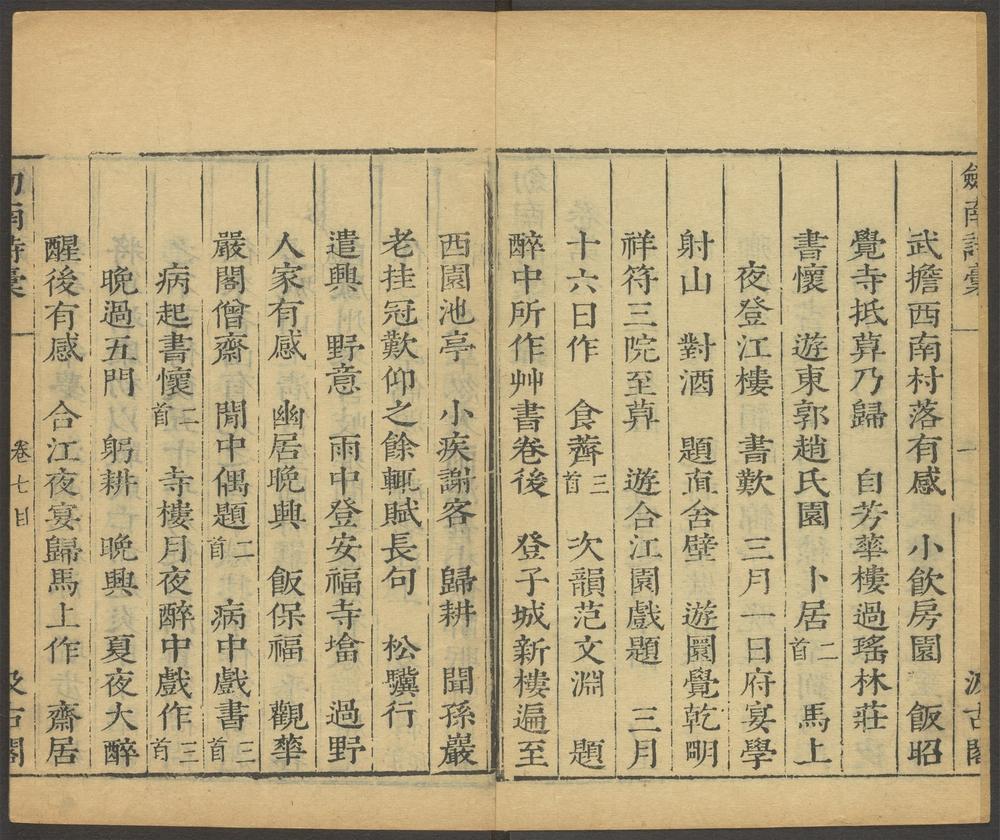 劒南詩稾
汲古閣
武擔西南村落有感　小飲房園　飯昭
覺寺抵暮乃歸　自芳華樓過瑤林莊
書懷　遊東郭趙氏園　卜居二首　馬上
夜登江樓　書歎　三月一日府宴學
射山　對酒　題直舍壁　遊圜覺乾明
祥符三院至暮　遊合江園戲題　三月
十六日作　食薺三首　次韻范文淵　題
醉中所作艸書卷後　登子城新樓遍至
西園池亭　小疾謝客　歸耕　聞孫巖
老挂冠歎仰之餘輒賦長句　松驥行
遣興　野意　雨中登安福寺塔　過野
人家有感　幽居晚興　飯保福　觀華
嚴閣僧齋　閒中偶題二首　病中戲書三首
病起書懷二首　寺樓月夜醉中戲作三首
晚過五門　躬耕　晚興　夏夜大醉
醒後有感　合江夜宴歸馬上作　齋居
劒南詩稾
卷七目
汲古閣